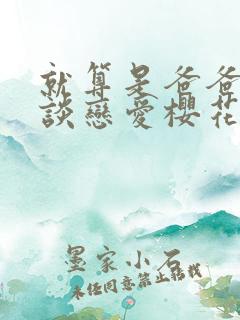 就算是爸爸
談戀愛櫻花
墨家小石
未经同意禁止转载